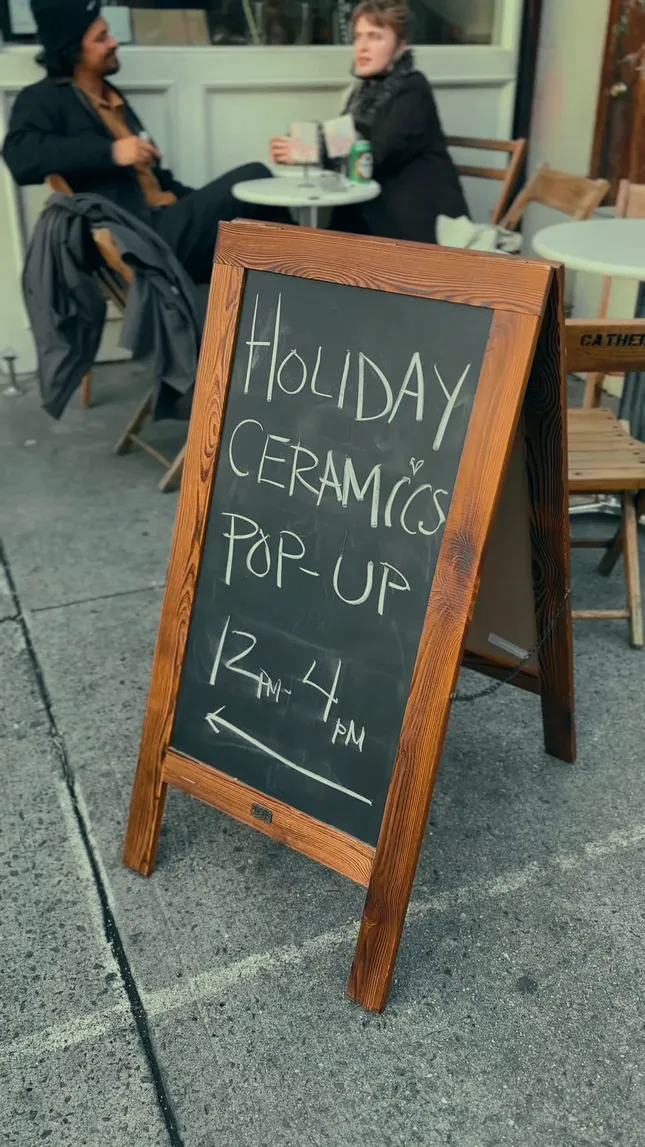 HOLIDAY
CERAMICS
POP-UP
12PM-4PM
CATHE